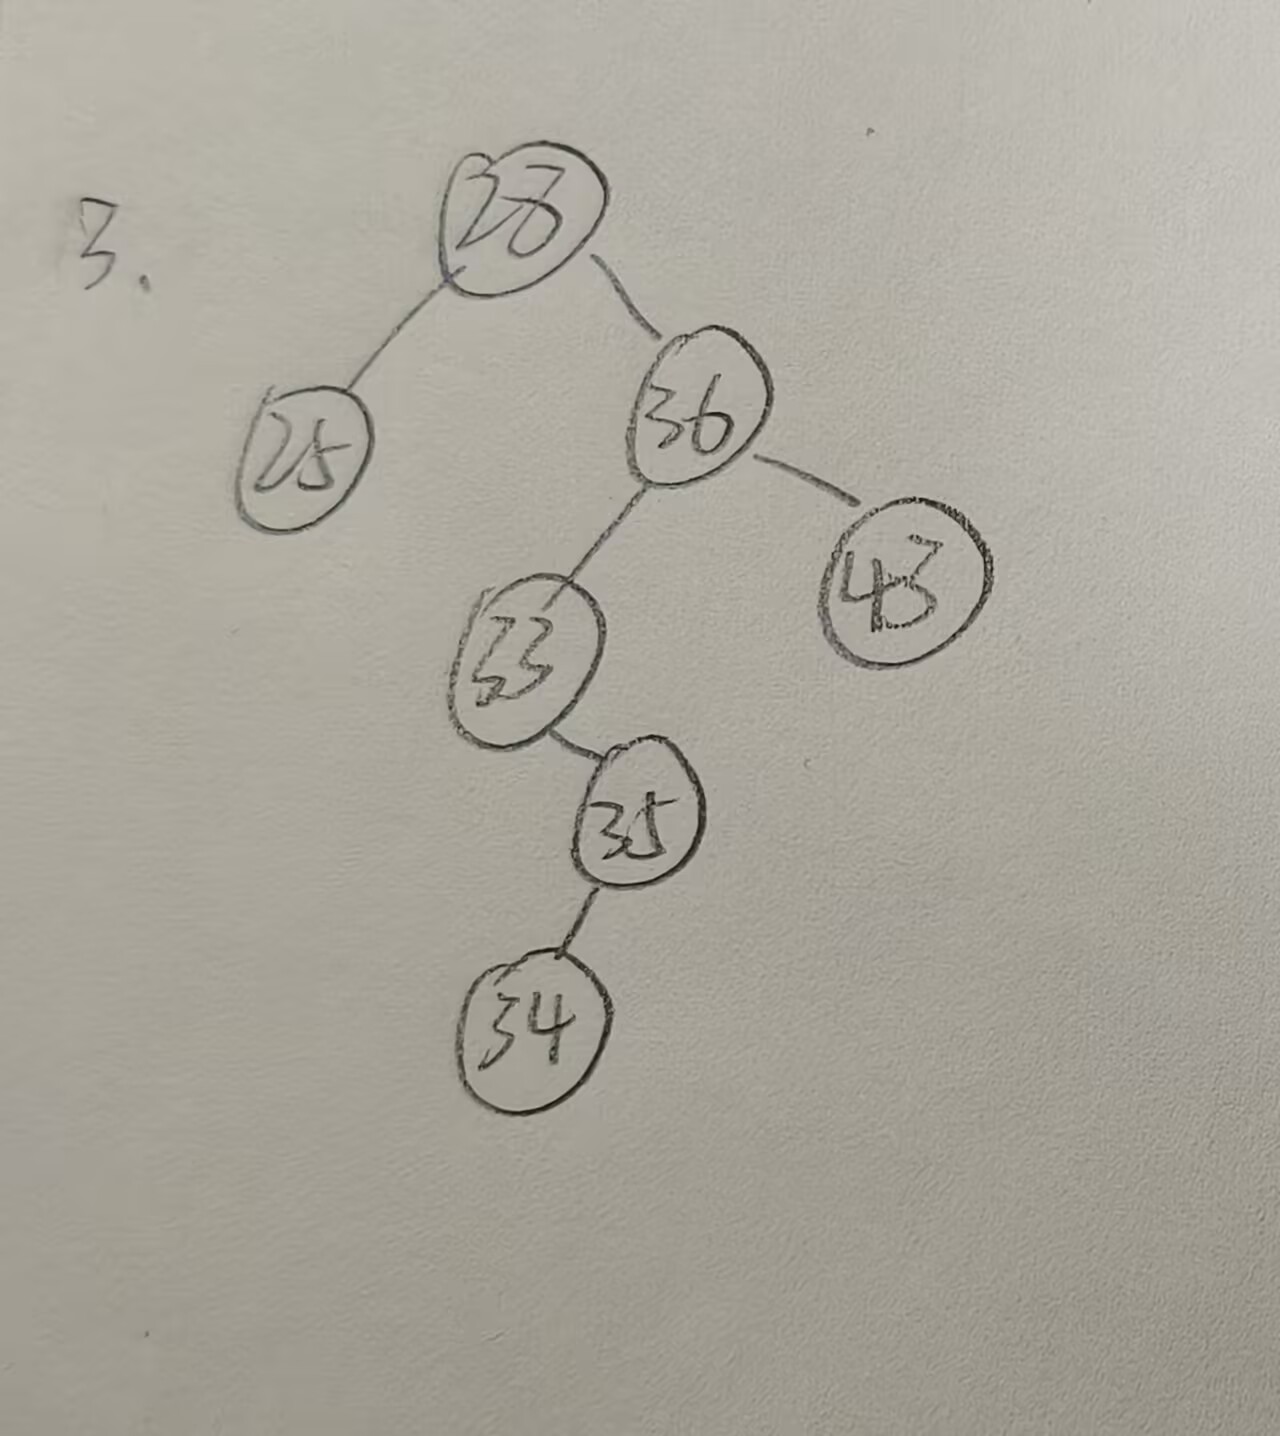 3.
28
25
36
43
33
35
34